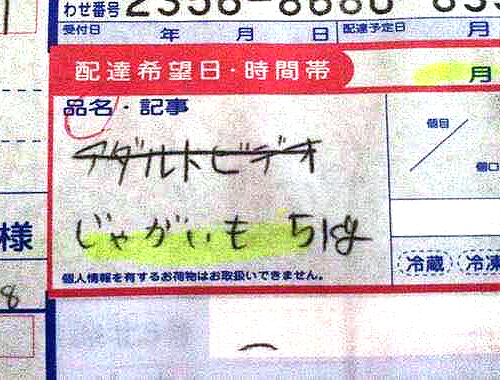 わせ番号 2358-8680-835
受付日 年 月 日 配達予定日 月
配達希望日・時間帯 月
品名・記事
アダルトビデオ
個目
個口
じゃがいも 5kg
様
個人情報を有するお荷物はお取扱いできません。
冷蔵 冷凍
8